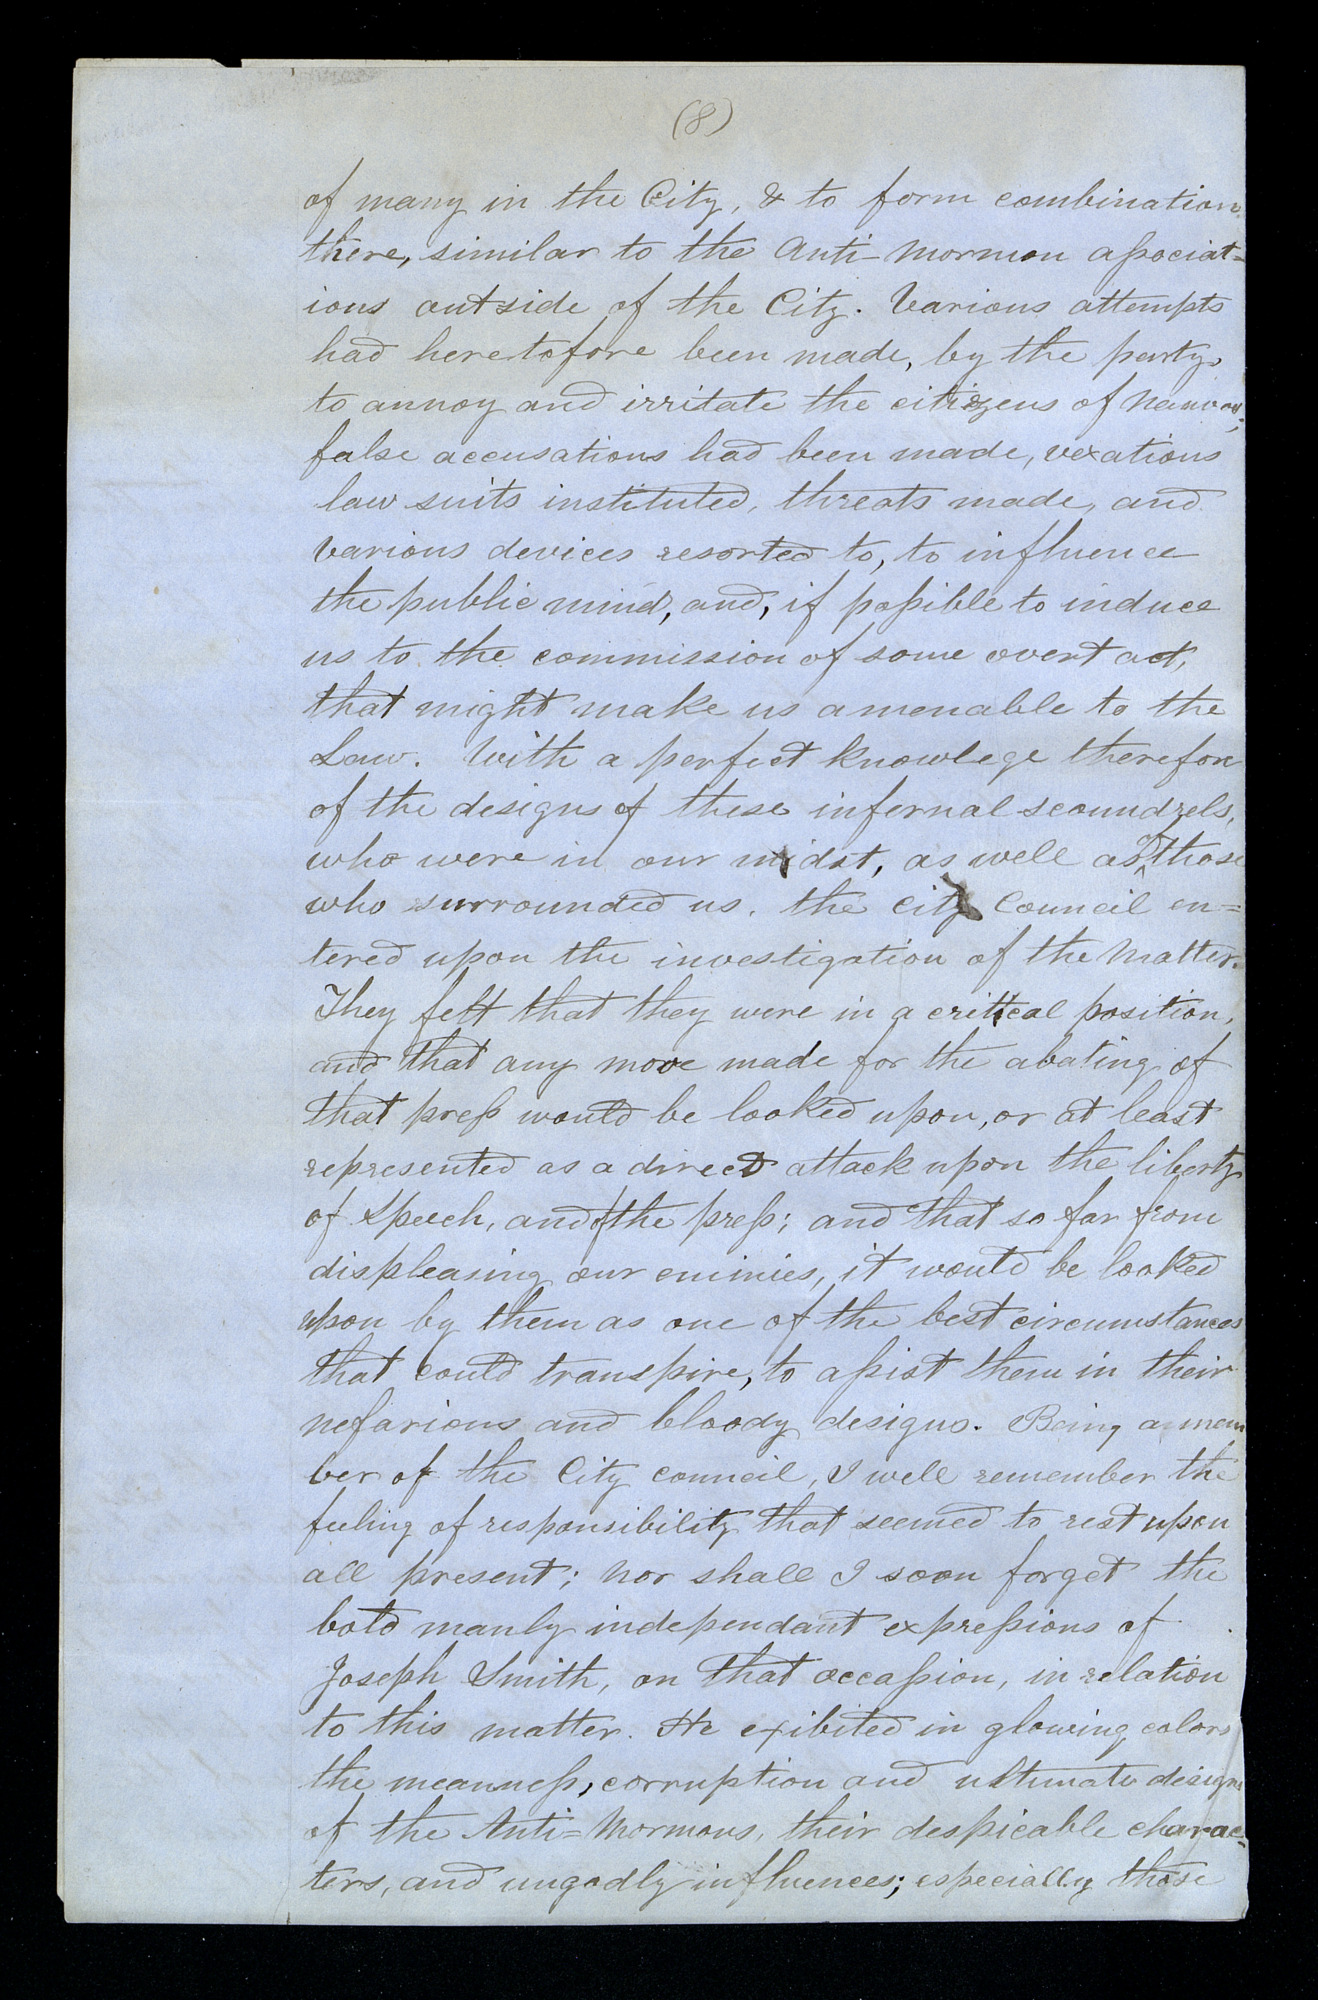 (8)
of many in the City, & to form combination
there, similar to the Anti-Mormon associat=
ions outside of the City. Various attempts
had heretofore been made, by the party,
to annoy and irritate the citizens of Nauvoo;
false accusations had been made, vexatious
law suits instituted, threats made, and
various devices resorted to, to influence
the public mind, and, if possible to induce
us to the commission of some overt act,
that might make us amenable to the
Law. With a perfect knowlege therefore
of the designs of these infernal scoundrels,
who were in our midst, as well as of those
who surrounded us, the city Council en=
tered upon the investigation of the Matter.
They felt that they were in a critical position,
and that any move made for the abating of
that press would be looked upon, or at least
represented as a direct attack upon the liberty
of speech, and of the press; and that so far from
displeasing our enimies, it would be looked
upon by them as one of the best circumstances
that could transpire, to assist them in their
nefarious and bloody designs. Being a mem
ber of the City Council, I well remember the
feeling of responsibility that seemed to rest upon
all present; nor shall I soon forget the
bold manly independant expressions of
Joseph Smith, on that occassion, in relation
to this matter. He exibited in glowing colors
the meanness, corruption and ultimate designs
of the Anti=Mormons, their despicable charac=
ters, and ungodly influences; especially those